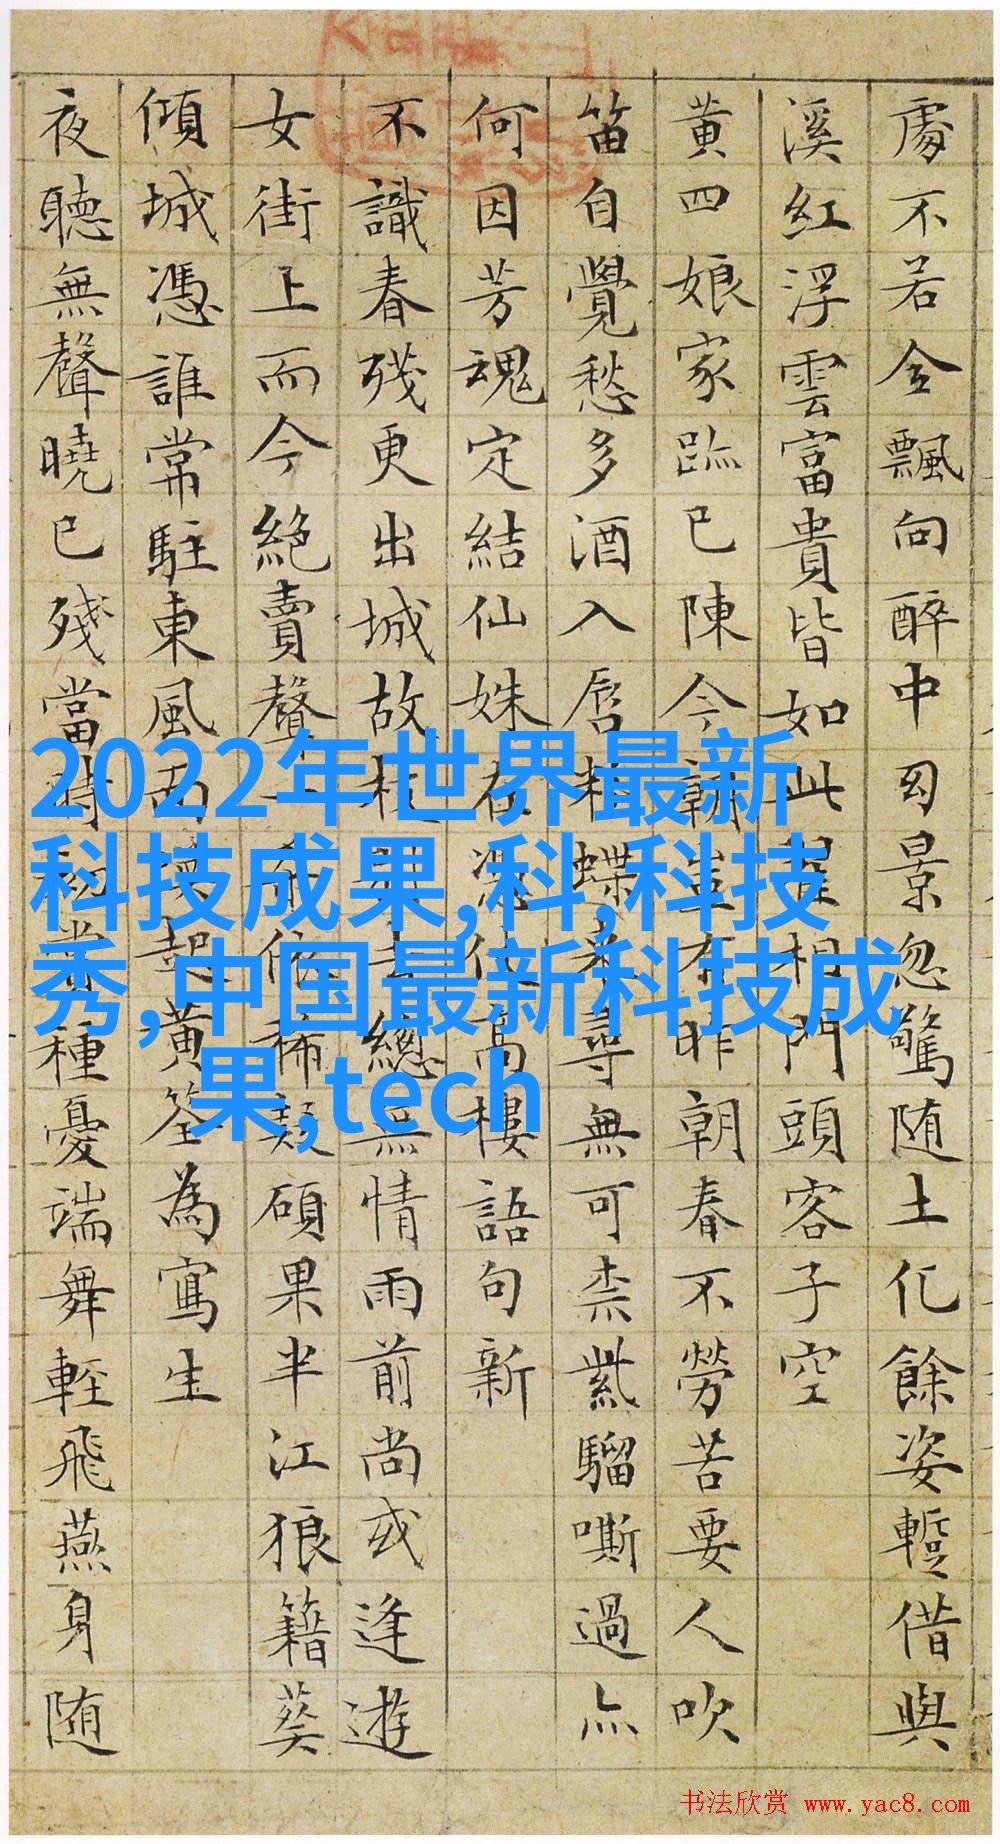 處不若全飄向醉中幻景忽驚随土化餘姿蹔借與
溪紅浮雲富貴皆如此相門頭客子空
黄四娘家跡已陳今朝豈有昨朝春不勞苦要人吹
笛自覺愁多酒入唇粉蝶来尋無可柰紫騮嘶過亦
何因芳魂定結仙姝在高樓語句新
不識春殘更出城故枝去總無情雨前尚或逢遊
女街上而今絶賣聲一依稀類碩果半江狼籍葵
傾城憑誰常駐東風面起黄筌為寫生
夜聽無聲曉已殘當時種憂端舞輕飛燕身随
2022年世界最新
科技成果,科,科技
秀,中国最新科技成
果,tech
书法欣赏 www.yac8.com